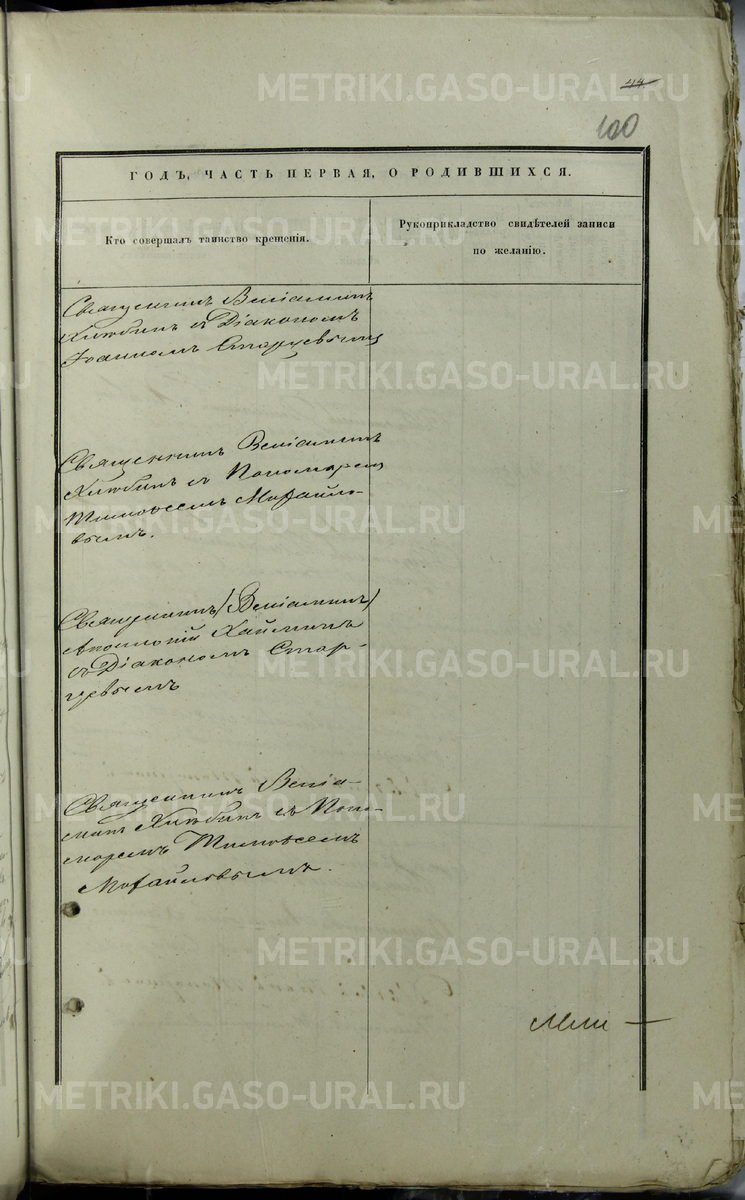 44
100
ГОДЪ, ЧАСТЬ ПЕРВАЯ, О РОДИВШИХСЯ.
Кто совершалъ таинство крещенія.
Рукоприкладство свидѣтелей записи
по желанію.
Священникъ Веніаминъ
Хлѣбинъ съ Діакономъ
Іоанномъ Старцевымъ
Священникъ Веніаминъ
Хлѣбинъ съ Пономарем
Тимовеемъ Михайло-
вымъ.
Священникъ (Веніаминъ)
съ Діакономъ Стар-
цевымъ
Священникъ Веніа-
минъ Хлѣбинъ съ Поно-
маремъ Тимовеемъ
Михайловымъ.
METRIKI.GASO-URAL.RU